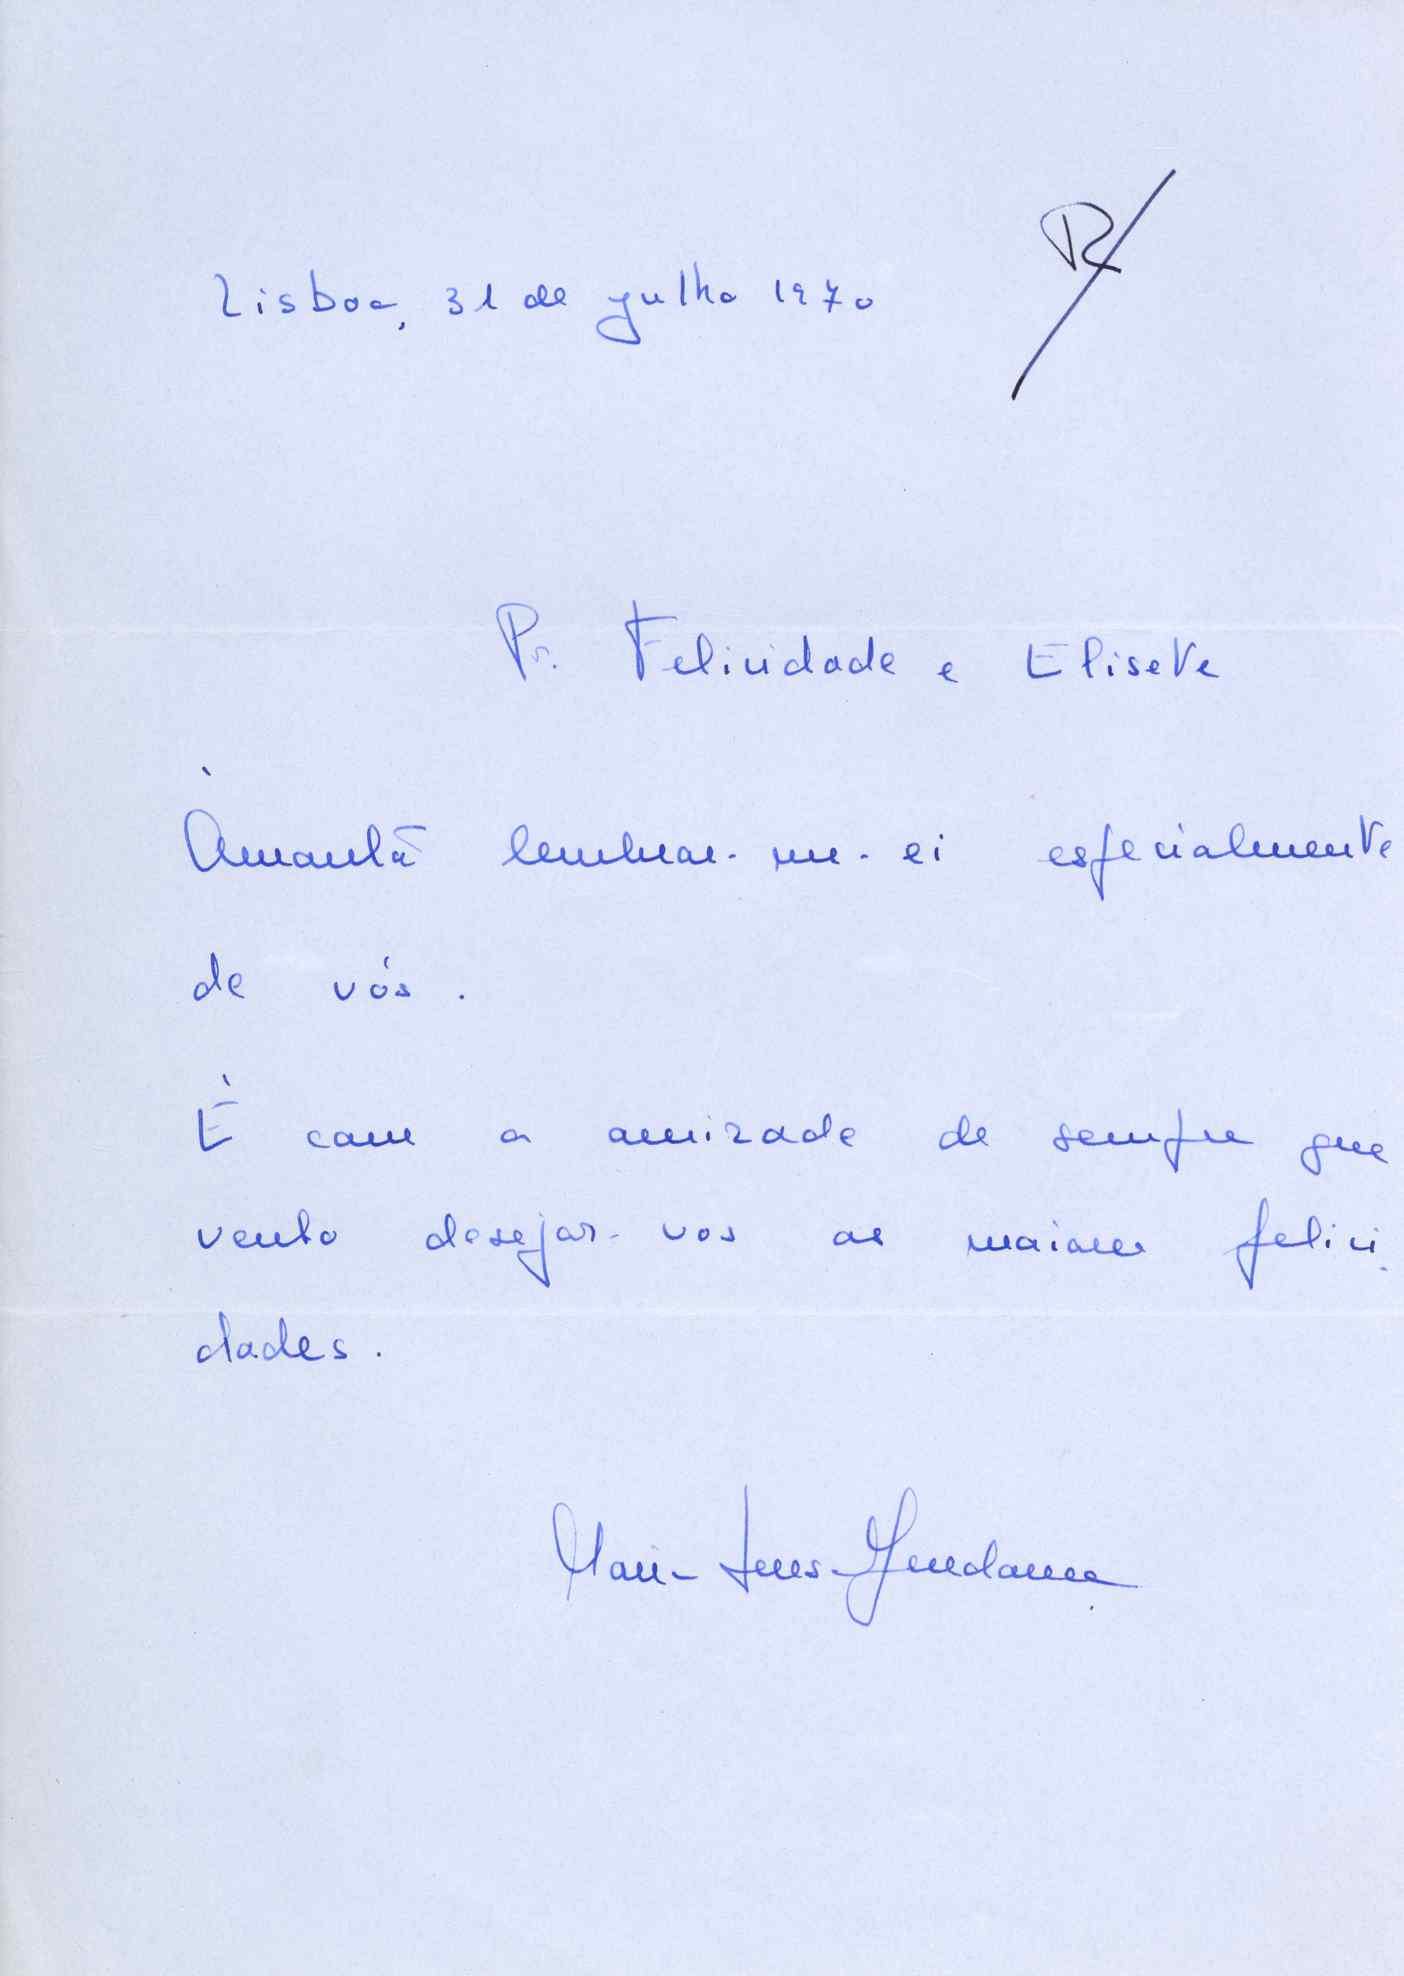 R
Lisboa, 31 de julho 1970
Pr. Felicidade e Elisete
Àmanhã lembrar-me-ei especialmente
de vós.
É com a amizade de sempre que
venho desejar-vos as maiores felici
dades.
Maria Ines